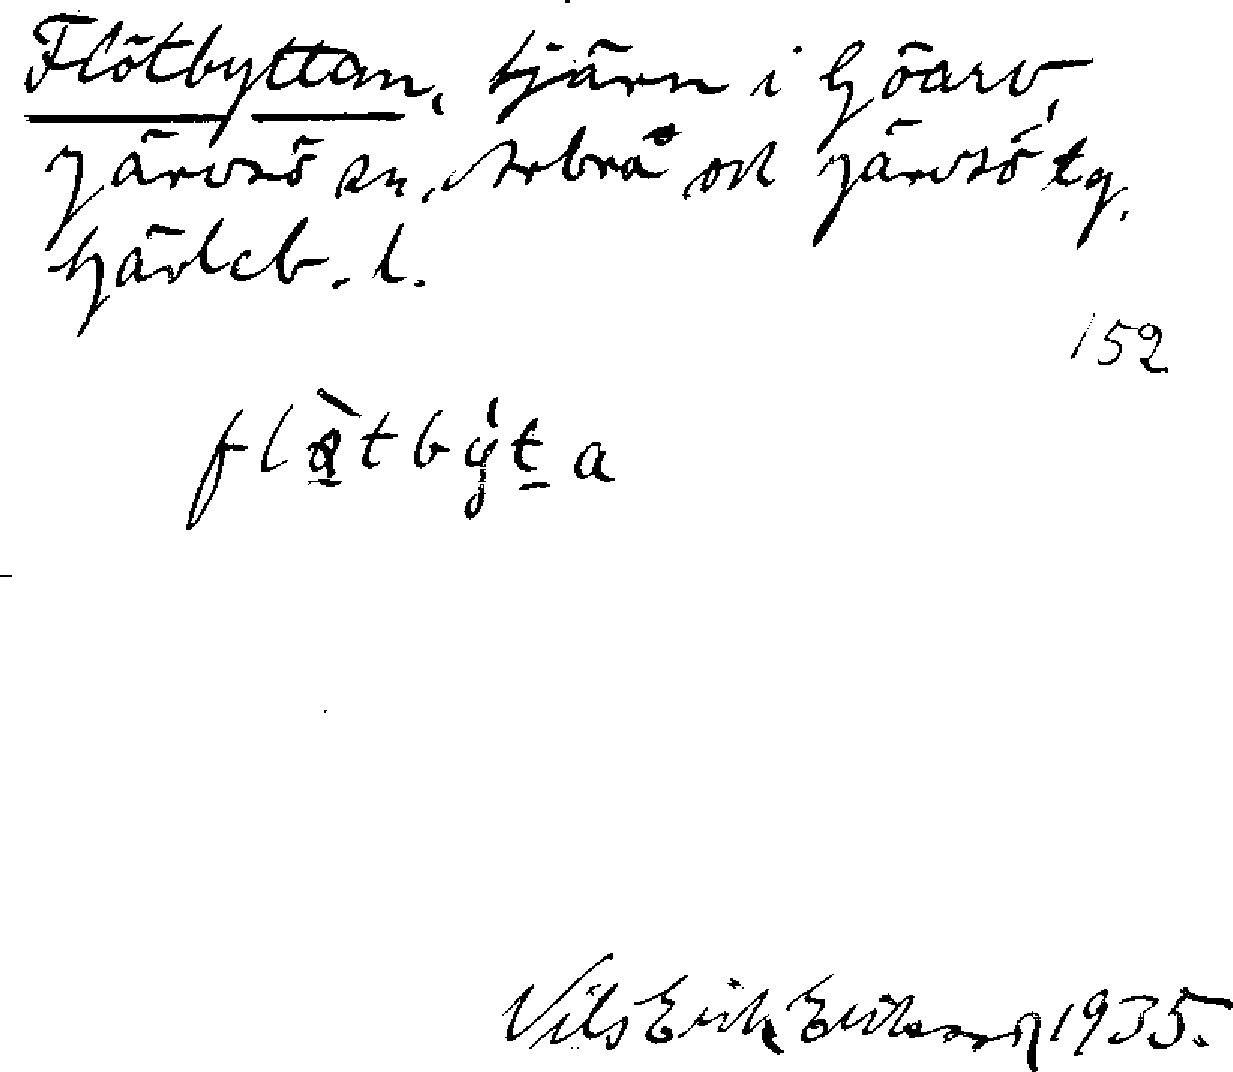 Flötbyttan, tjärn i Hjöarv,
Järvsö sn, Arbrå och Järvsö tg,
Gävleb. l.
152
Nils Erik Eriksson 1935.